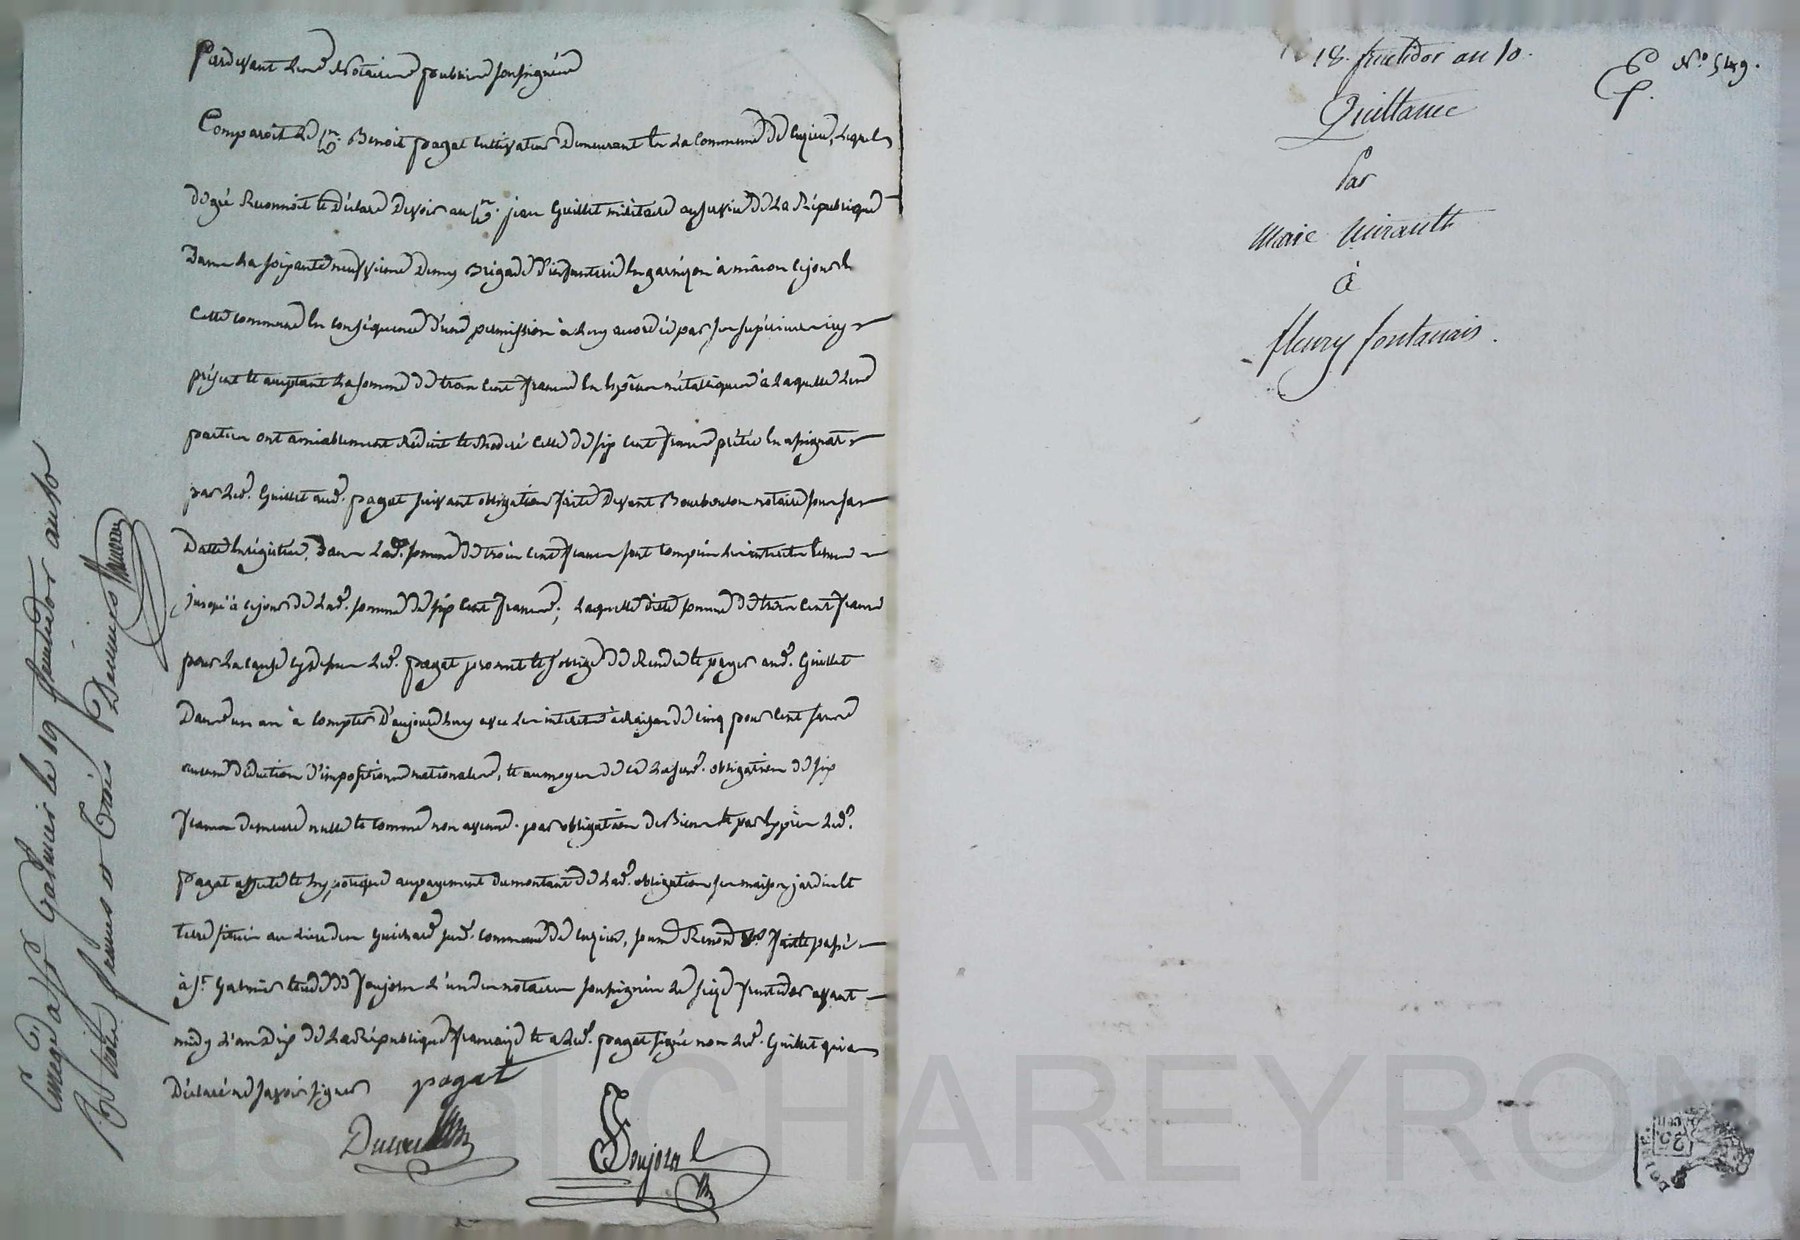 Pardevant Les Notaires publics soussignés
Comparoit Le Sr. Benoit pagat cultivateur Demeurant En La Commune de Cuzieu, Lequel
de gré Reconnoit et Déclare Devoir au Sr. jean Guillet militaire au service de La République
Dans La soixante neuvieme Demy Brigade d'infanterie En garnizon à mâcon ce jour En
Cette commune En conséquence d'une permission à Luy accordée par ses supérieurs icy
présent et acceptant La somme de trois Cent francs En Espèces métalliques à Laquelle Les
parties ont amiablement Réduit et Moderé Celle de six Cent francs prétée En assignats
par Led. Guillet aud. pagat suivant obligation faite Devant Bourboulon notaire sous sa
Datte Enrégistrée, Dans Lad. somme de trois Cent francs sont Compris Les interets
jusqu'à ce jour de Lad. somme de six Cent francs; Laquelle ditte somme de trois Cent francs
pour La cause cydessus Led. pagat promet et s'oblige de Rendre et payer aud. Guillet
Dans un an à Compter D'aujourdhuy avec Les interets à Raison de Cinq pour Cent sans
aucune déduction d'impositions nationales, et au moyen de ce La susd. obligation de six
francs demeure nulle et comme non avenue. par obligation de Biens et par Exprès Led.
pagat affecte et hypotéque au payement du montant de Lad. obligation ses maison jardin et
terre situés au Lieu des Guichard susd. commune de Cuzieu, sous Renon. fait et passé
à St. Galmier Etude de Foujols L'un des notaires soussignés Le seize fructidor avant
midy L'an Dix de La République française et a Led. pagat signé non Led. Guillet qui a
Déclaré ne savoir signer
pagat
Foujols
Enregé a St Galmier le 19 fructidor an 10
Rt trois francs et trois Décimes
18. fructidor an 10.
Quittance
Par
Marie Mirault
à
fleury fontanais.
No. 549.
Pascal CHAREYRON